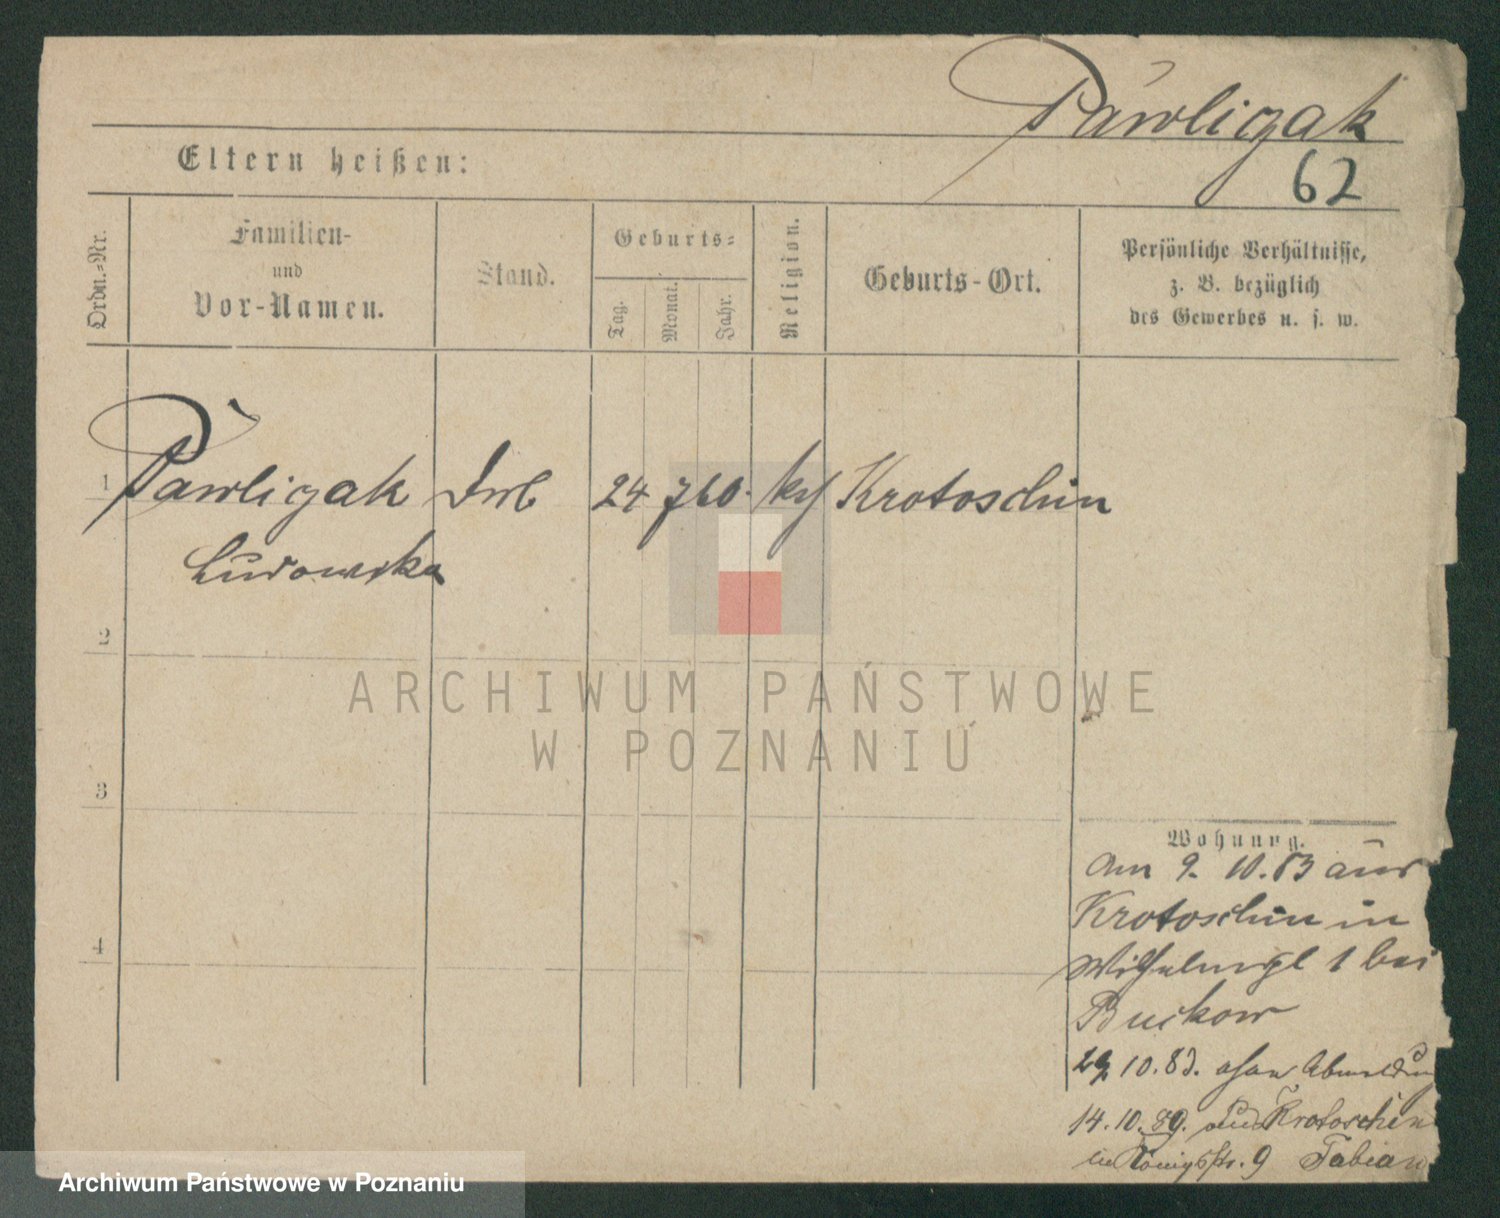 Pawligak
62
Eltern heißen:
Ordn.-Nr.
Familien-
und
Vor-Namen.
Stand.
Geburts-
Tag.
Monat.
Jahr.
Religion.
Geburts-Ort.
Persönliche Verhältnisse,
z. B. bezüglich
des Gewerbes u. s. w.
1 Pawligak 24 7 60. Krotoschin
Ludowika
2
ARCHIWUM PAŃSTWOWE
W POZNANIU
3
Wohnung.
Am 9. 10. 83 aus
Krotoschin in
Wilhelmspl 1 bei
4
Buckow
29 10. 83. ohne Abmeldung
14. 10. 89. aus Krotoschin
in Königstr. 9 Fabian
Archiwum Państwowe w Poznaniu